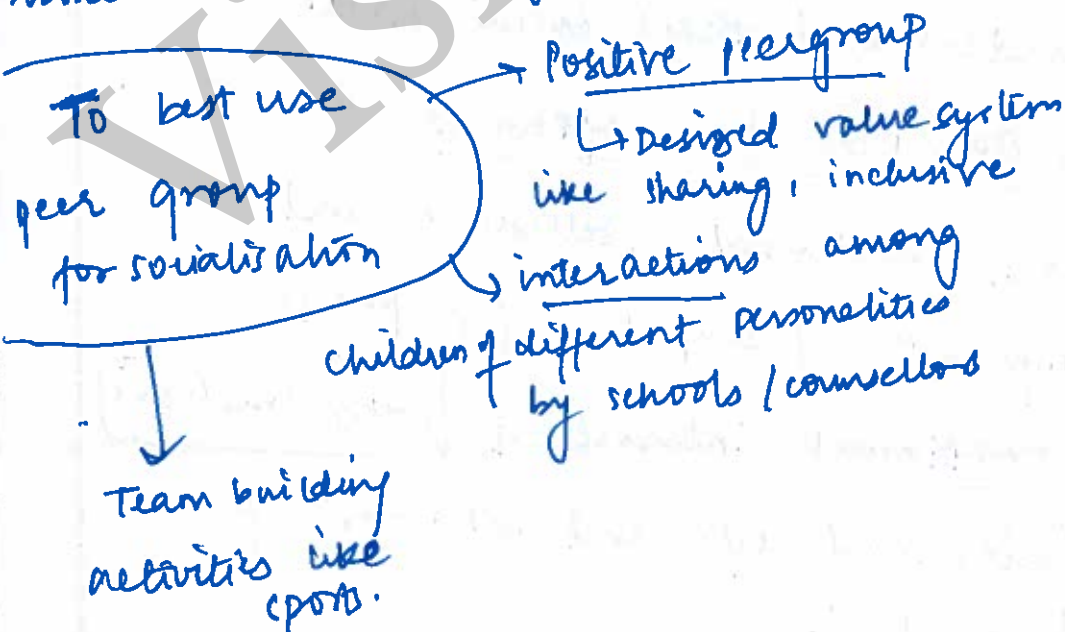 To best use
peer group
for socialisation
Positive peergroup
↳ Desired value system
like sharing, inclusive
interactions among
children of different personalities
by schools / counsellors
Team building
activities like
sports.